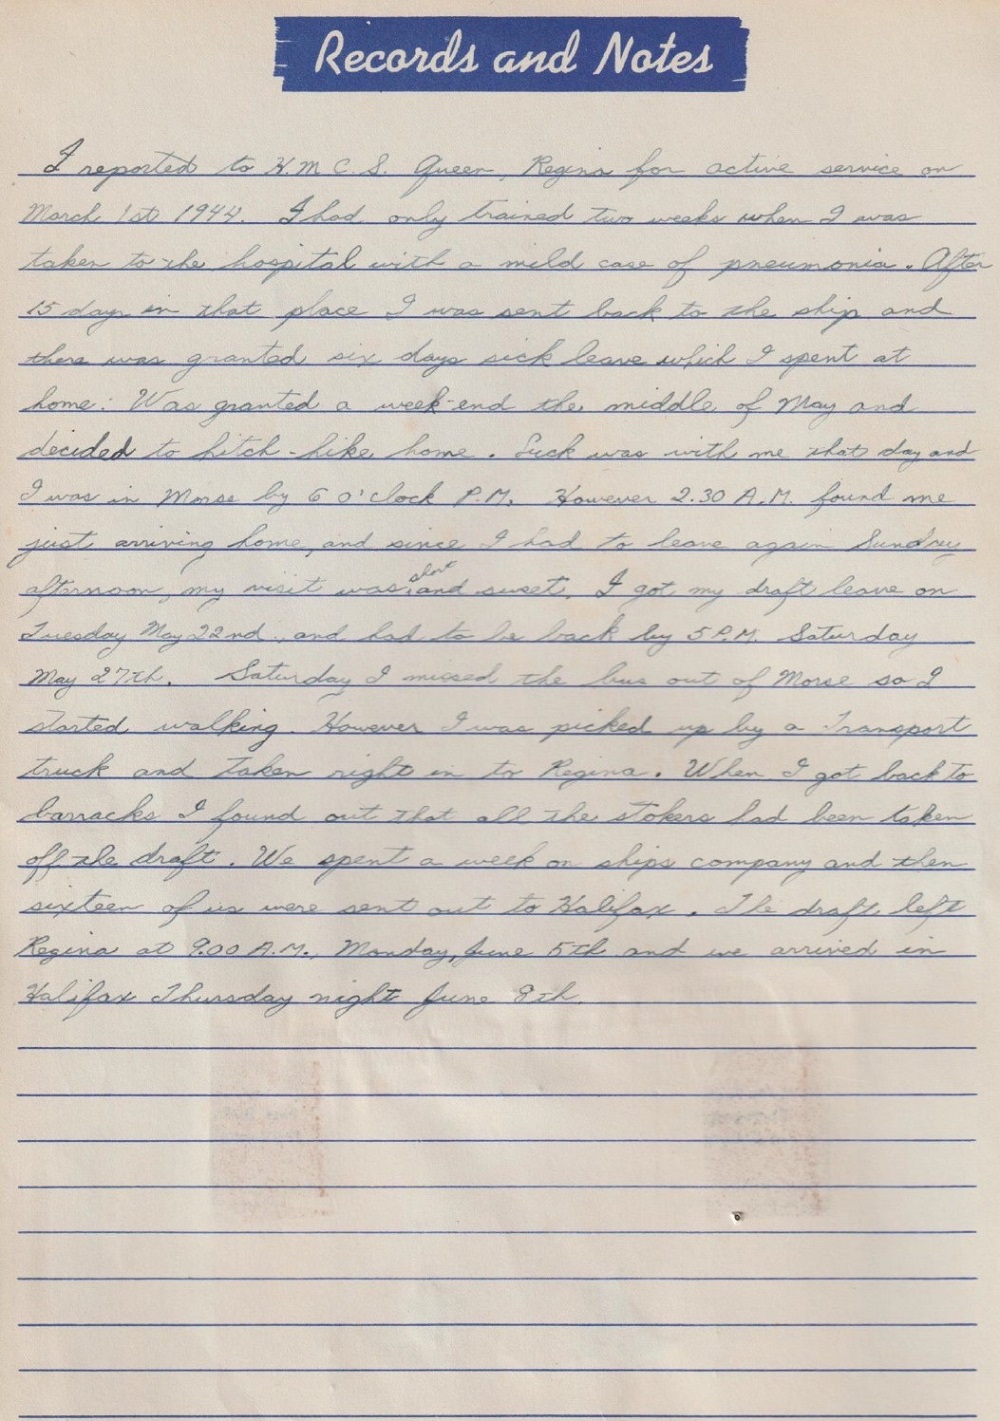 Records and Notes
I reported to H.M.C.S. Queen, Regina for active service on
March 1st 1944. I had only trained two weeks when I was
taken to the hospital with a mild case of pneumonia. After
15 days in that place I was sent back to the ship and
there was granted six days sick leave which I spent at
home. Was granted a week-end the middle of May and
decided to hitch-hike home. Luck was with me that day and
I was in Morse by 6 o'clock P.M. However 2.30 A.M. found me
just arriving home, and since I had to leave again Sunday
afternoon, my visit was short and sweet. I got my draft leave on
Tuesday May 22nd, and had to be back by 5 P.M. Saturday
May 27th. Saturday I missed the bus out of Morse so I
started walking. However I was picked up by a Transport
truck and taken right in to Regina. When I got back to
barracks I found out that all the stokers had been taken
off the draft. We spent a week on ships company and then
sixteen of us were sent out to Halifax. The draft left
Regina at 9.00 A.M., Monday, June 5th and we arrived in
Halifax Thursday night June 8th.